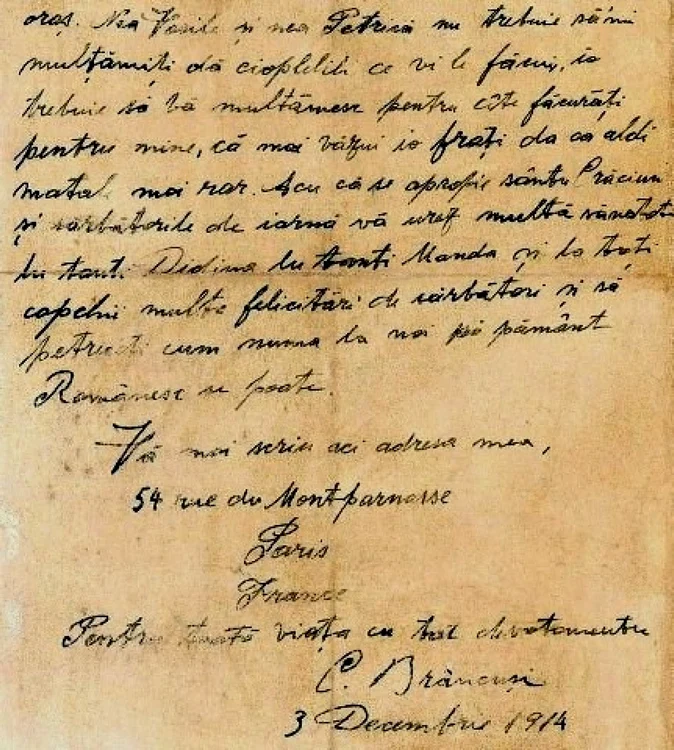 oraș. Nea Vasile și nea Petrică nu trebuie să'mi
mulțămiți dă ciopleliti ce vi le făcui, io
trebuie să vă multămesc pentru cîte făcurăți
pentru mine, că mai văzui io frați da ca aldi
matale mai rar. Acu că se apropie sântu Crăciun
și sărbătorile de iarnă vă urez multă sănatate
lu tanti Didina lu tanti Manda și la toți
copchii multe felicitări de sărbători și să
petreceți cum numa la noi pă pământ
Românesc se poate.
Vă mai scriu aci adresa mea,
54 rue du Montparnasse
Paris
France
Pentru toată viața cu tot devotamentu
C. Brâncuși
3 Decembrie 1914